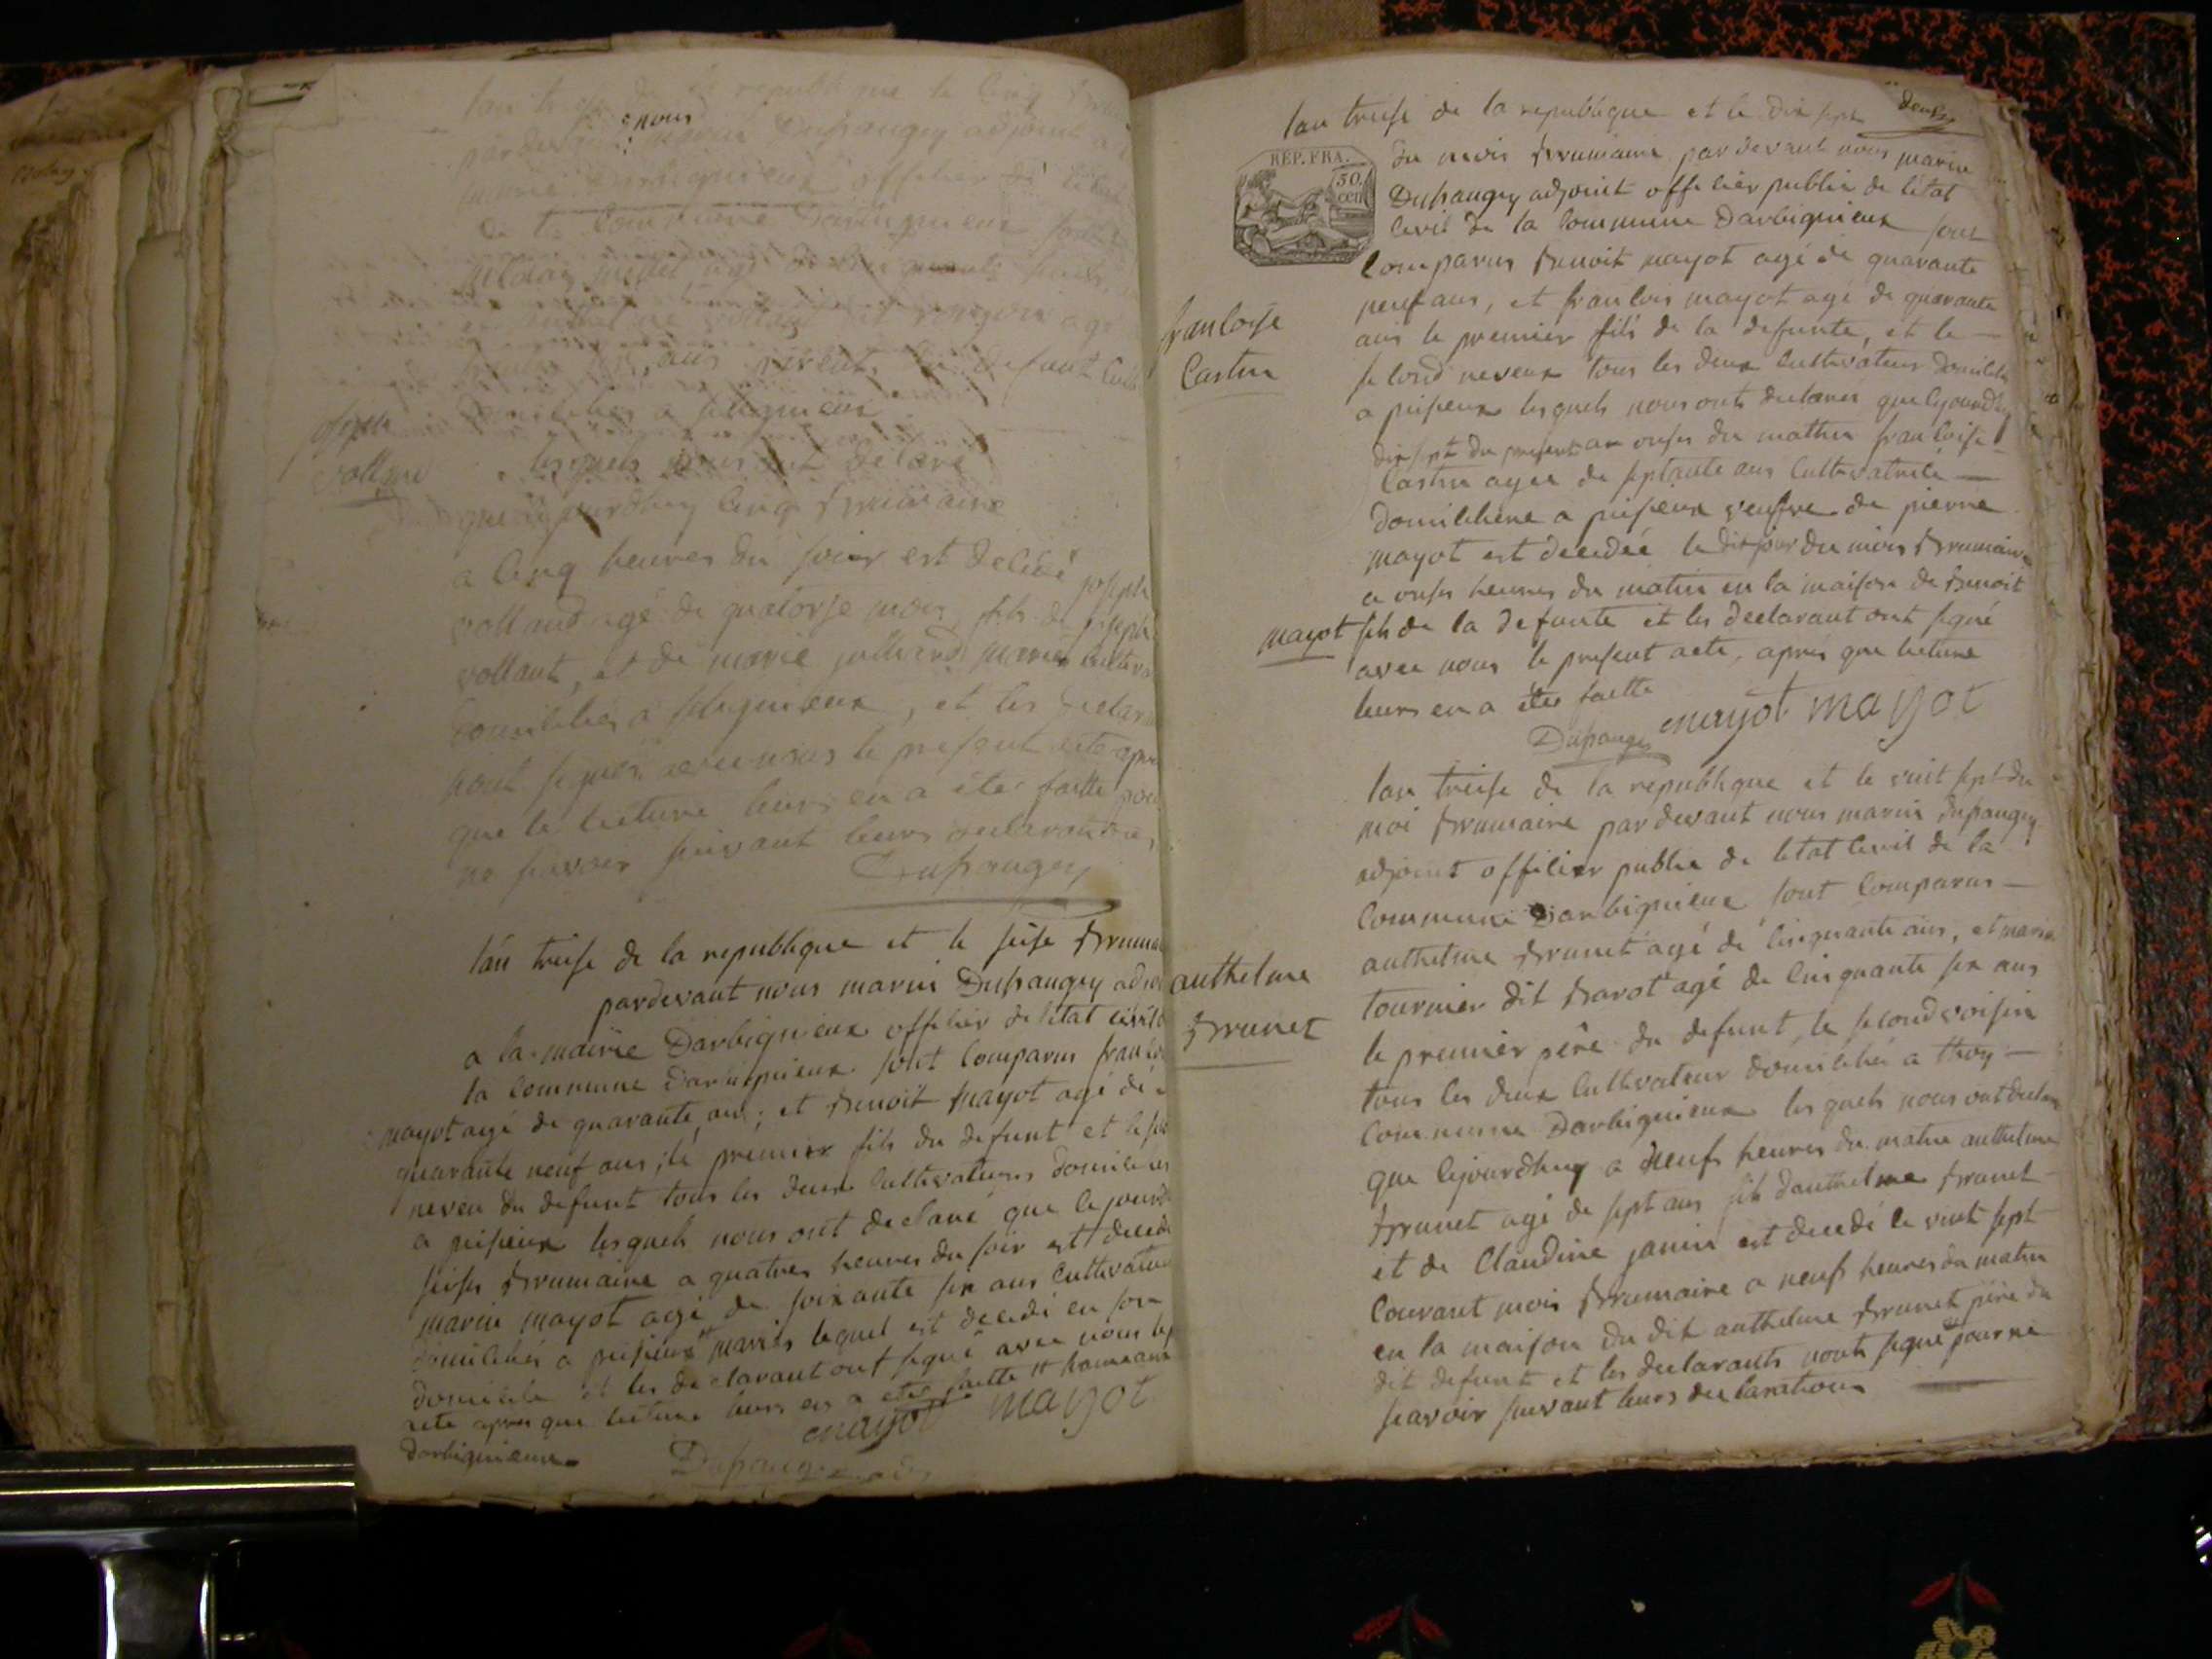 lan de la republique le Cinq
nous
pardevant marin Dupaugey adjoint a
mairie officier de létat
de la commune Darbignieux sont
agé
age
ans parents du defunt
domicilies a peugnieux
joseph
vollant
lesquels nous ont declaré
que cejourdhuy cinq brumaire
a cinq heures du soir est decedé joseph
volland agé de quatorse mois fils de joseph
vollant, et de marie julliard mariés
domiciliés a pelignieux, et les
nont signés avec nous le present acte
que la lecture leurs en a étée faitte pour
ne scavoir suivant leurs declarations
Dupaugey
lán treise de la republique et le seise brumai
pardevant nous marin Dupaugey adjoi
a la mairie Darbignieux officier de létat civil d
la commune Darbignieux sont comparus
mayot agé de quarante ans ; et benoit mayot agé de
quarante neuf ans ; le premier fils du defunt et le
neveu du defunt tous les deux cultivateurs domicilies
a peisieux lesquels nous ont declaré que cejourd
seise brumaire a quatres heures du soir est decedé
marin mayot agé de soixante six ans cultivateur
domicilié a peisieux # mariés lequel est decedé en son
domicile et les declarant ont signé avec nous le p
acte apres que lecture leurs en a étée faitte # hameau
Darbignieux
mayot mayot
Dupaugey
deux
lan treise de la republique et le dix sept
REP. FRA.
50
cen
du mois brumaire pardevant nous marin
Dupaugey adjoint officier public de létat
civil de la commune Darbignieux sont
comparus benoit mayot agé de quarante
neuf ans, et francois mayot agé de quarante
francoise
Castin
ans le premier fils de la defunte, et le
second neveux tous les deux cultivateurs domicilies
a peisieux lesquels nous ont declarés que cejourdhuy
dix sept du present a onses du mattin francoise
Castin agée de septante ans cultivatrice
domiciliene a peisieux veufve de pierre
mayot est decedée le dix sept du mois brumaire
a onses heures du matin en la maison de benoit
mayot fils de la defunte et les declarant ont signé
avec nous le present acte, apres que lecture
leurs en a étée faitte
Dupaugey mayot mayot
lan treise de la republique et le vint sept du
moi brumaire pardevant nous marin dupaugey
adjoint officier public de létat civil de la
commune Darbignieux sont comparus
authelme
Brunet
anthelme brunet agé de cinquante ans, et marin
tournier dit barot agé de cinquante six ans
le premier pére du defunt, le second voisin
tous les deux cultivateur domicilié a thoy
commune Darbignieux lesquels nous ont declaré
que cejourdhuy a neufs heures du matin anthelme
brunet agé de sept ans fils danthelme brunet
et de Claudine janin est decedé le vint sept
courant mois brumaire a neufs heures du matin
en la maison du dit anthelme brunet pére du
dit defunt et les declarants nonts signé pour ne
scavoir suivant leurs declarations